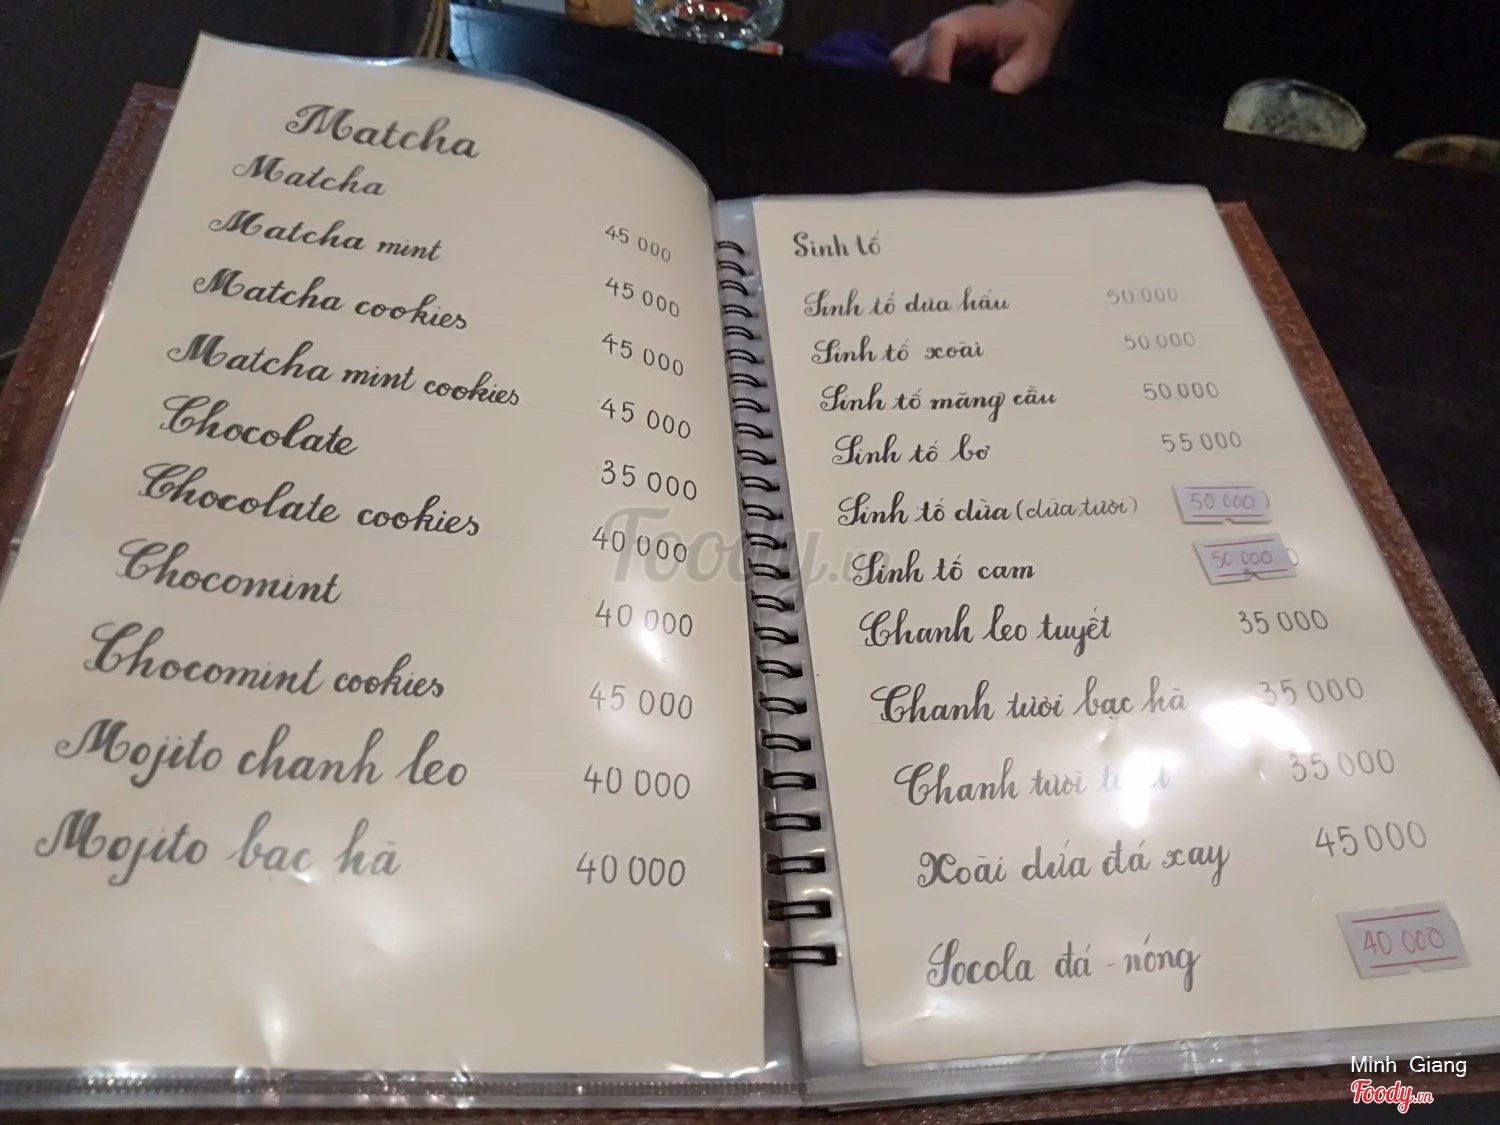 Matcha
Matcha 45 000
Matcha mint 45 000
Matcha cookies 45 000
Matcha mint cookies 45 000
Chocolate 35 000
Chocolate cookies 40 000
Chocomint 40 000
Chocomint cookies 45 000
Mojito chanh leo 40 000
Mojito bạc hà 40 000
Sinh tố
Sinh tố dưa hấu 50 000
Sinh tố xoài 50 000
Sinh tố mãng cầu 50 000
Sinh tố bơ 55 000
Sinh tố dừa (dừa tươi) 50 000
Sinh tố cam 50 000
Chanh leo tuyết 35 000
Chanh tươi bạc hà 35 000
Chanh tươi 35 000
Xoài dứa đá xay 45 000
Socola đá - nóng 40 000
Foody.vn
Minh Giang
Foody.vn